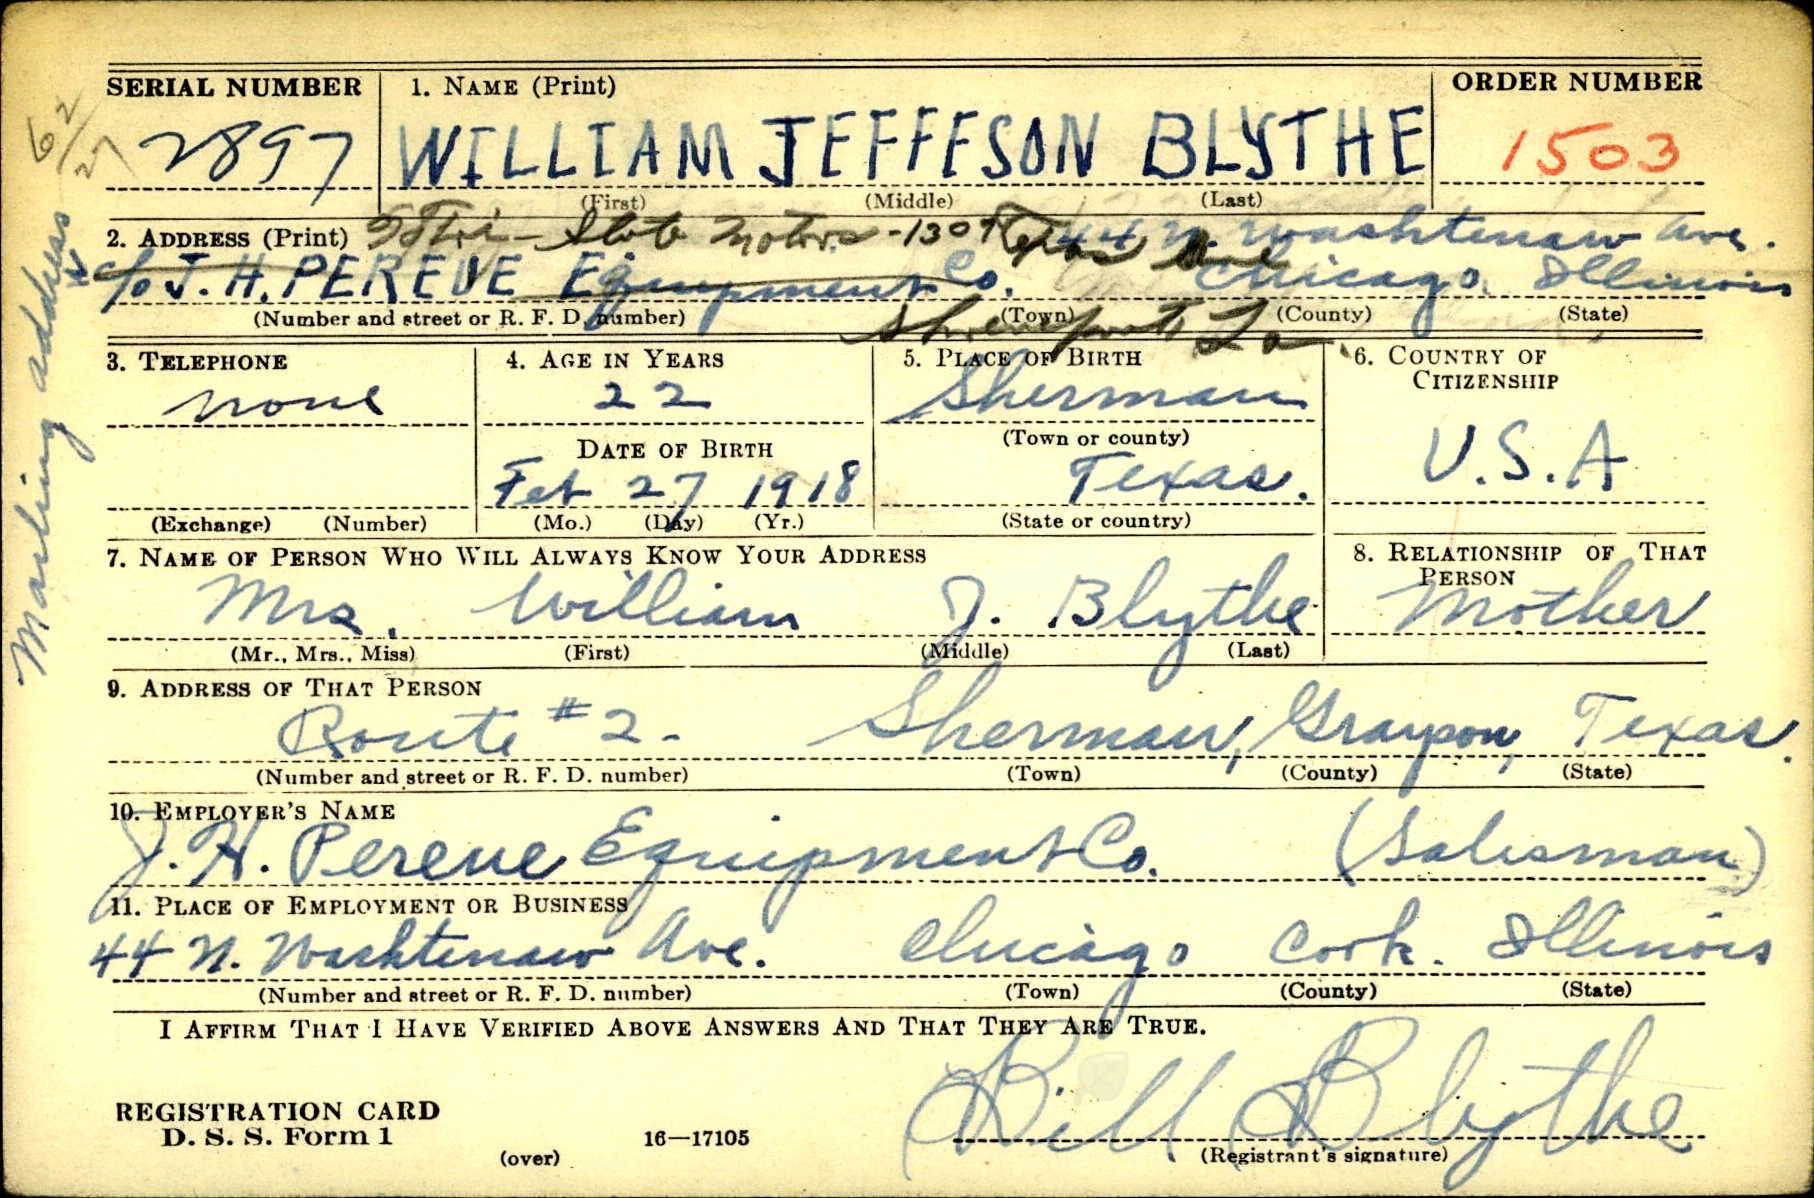 SERIAL NUMBER
1. NAME (Print)
ORDER NUMBER
2897
WILLIAM JEFFESON BLYTHE
1503
(First) (Middle) (Last)
2. ADDRESS (Print) Tri-State Motors - 1307 Texas Ave 44 N. Washtenaw Ave.
c/o J. H. PEREUE Equipment Co. Chicago. Illinois
Shreveport, La.
(Number and street or R. F. D. number) (Town) (County) (State)
Mailing address
62/27
3. TELEPHONE
none
(Exchange) (Number)
4. AGE IN YEARS
22
DATE OF BIRTH
Feb 27 1918
(Mo.) (Day) (Yr.)
5. PLACE OF BIRTH
Sherman
(Town or county)
Texas.
(State or country)
6. COUNTRY OF
CITIZENSHIP
U.S.A
7. NAME OF PERSON WHO WILL ALWAYS KNOW YOUR ADDRESS
Mrs. William J. Blythe
(Mr., Mrs., Miss) (First) (Middle) (Last)
8. RELATIONSHIP OF THAT
PERSON
Mother
9. ADDRESS OF THAT PERSON
Route #2. Sherman, Grayson, Texas.
(Number and street or R. F. D. number) (Town) (County) (State)
10. EMPLOYER'S NAME
J. H. Pereue Equipment Co. (Salesman)
11. PLACE OF EMPLOYMENT OR BUSINESS
44 N. Washtenaw Ave. Chicago Cook. Illinois
(Number and street or R. F. D. number) (Town) (County) (State)
I AFFIRM THAT I HAVE VERIFIED ABOVE ANSWERS AND THAT THEY ARE TRUE.
Bill Blythe
(Registrant's signature)
REGISTRATION CARD
D. S. S. Form 1
(over)
16—17105